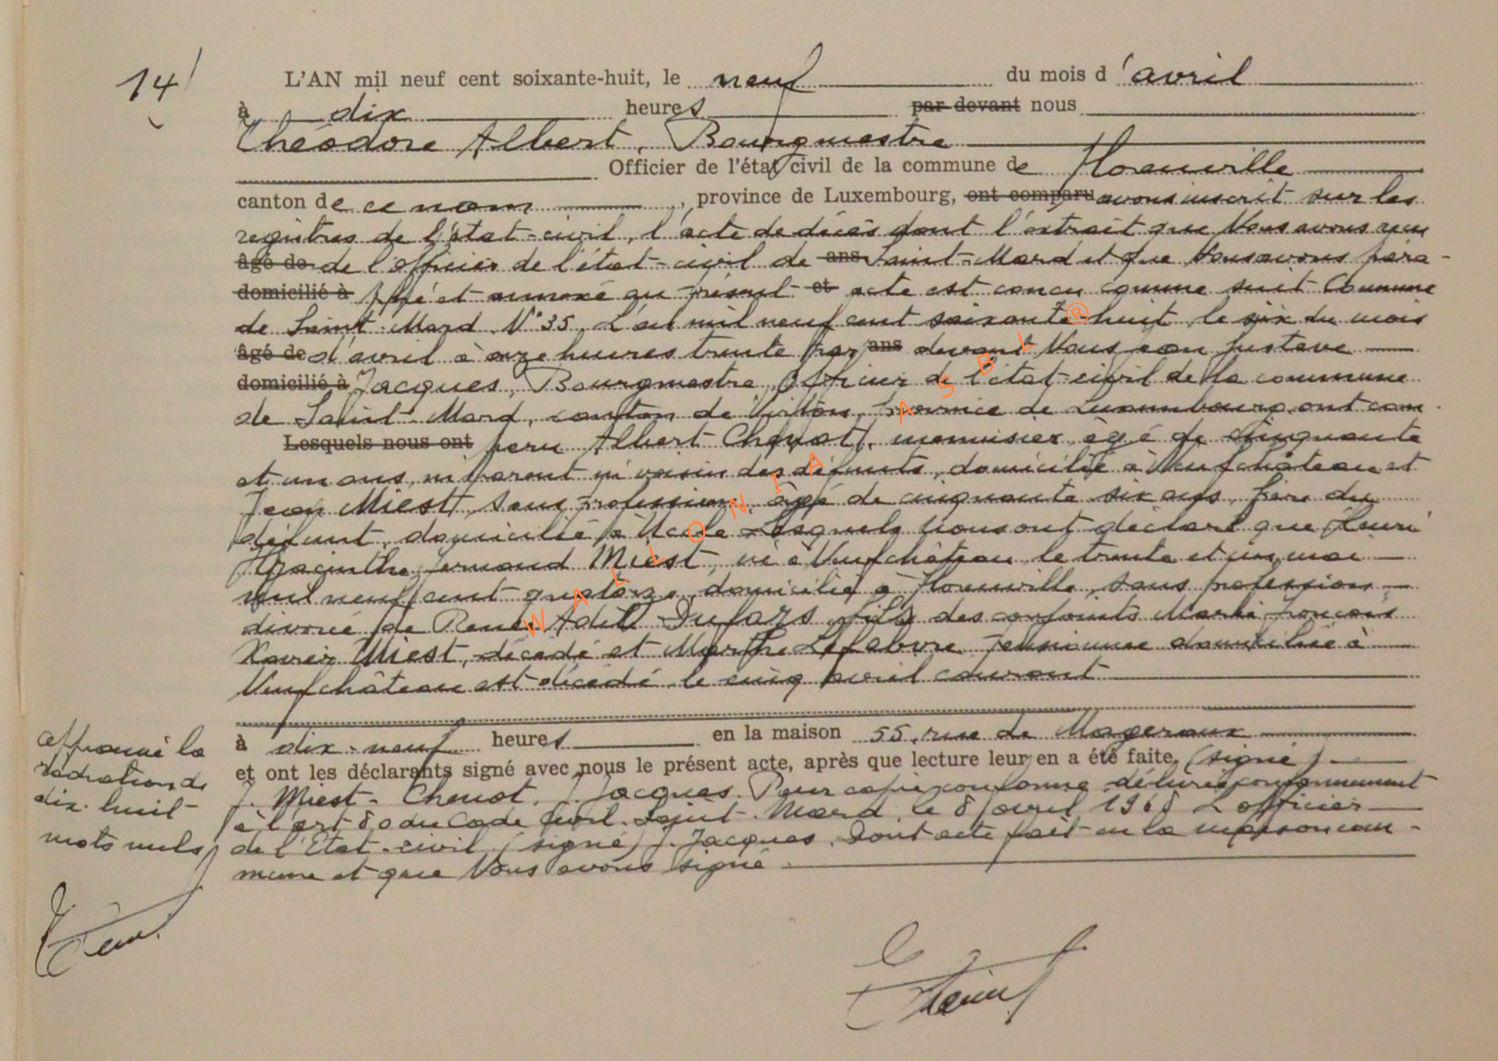 14
L'AN mil neuf cent soixante-huit, le neuf du mois d'avril
à dix heures par devant nous
Théodore Albert, Bourgmestre
Officier de l'état civil de la commune de Florenville
canton de ce nom, province de Luxembourg, ont comparu avons inscrit sur les
registres de l'état-civil, l'acte de décès dont l'extrait que Nous avons reçu
âgé de de l'officier de l'état-civil de ans Saint-Mard et que Nous avons para-
domicilié à phé et annexé au présent et acte est conçu comme suit Commune
de Saint-Mard N° 35. L'an mil neuf cent soixante-huit, le six du mois
âgé de d'avril à onze heures trente par ans devant Nous Jean Gustave
domicilié à Jacques, Bourgmestre, Officier de l'état-civil de la commune
de Saint-Mard, canton de Virton, province de Luxembourg, ont com-
Lesquels nous ont paru Albert Chenot, menuisier, âgé de cinquante
et un ans, ni parent ni voisin des défunts, domicilié à Neufchâteau et
Jean Miest, sans profession, âgé de cinquante six ans, frère du
défunt, domicilié à Uccle Lesquels Nous ont déclaré que Henri
Hyacinthe Fernand Miest, né à Neufchâteau le trente et un mai
mil neuf cent quatorze, domicilié à Florenville, sans profession
divorcé de Renée Adèle Dufars, fils des conjoints Marie François
Xavier Miest, décédé et Marthe Lefebvre, pensionnée domiciliée à
Neufchâteau est décédé le cinq avril courant
à dix-neuf heures en la maison 55, rue de Mageroux
et ont les déclarants signé avec nous le présent acte, après que lecture leur en a été faite, (signé)
J. Miest - Chenot, J. Jacques. Pour copie conforme délivrée conformément
à l'art 80 du Code Civil. Saint-Mard, le 8 avril 1968 L'officier
de l'Etat-civil (signé) J. Jacques. Dont acte fait en la maison com-
mune et que Nous avons signé
approuvé la
radiation de
dix-huit
mots nuls
WALLONIA ASBL®